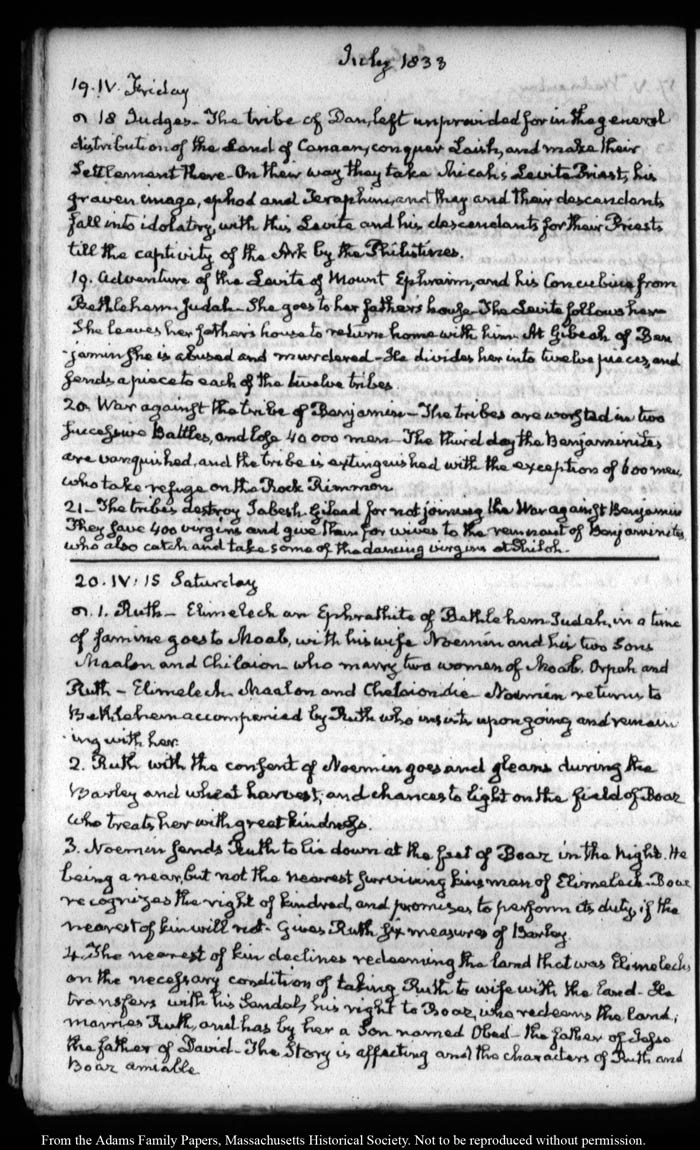 July 1833
19. IV. Friday
on 18 Judges. The tribe of Dan, left unprovided for in the general
distribution of the Land of Canaan, conquer Laish, and make their
Settlement there. On their way they take Micah's Levite Priest, his
graven image, ephod and Teraphim, and they and their descendants
fall into idolatry, with this Levite and his descendants for their Priests
till the captivity of the Ark by the Philistines.
19. Adventure of the Levite of Mount Ephraim, and his Concubine from
Bethlehem-Judah. She goes to her father's house. The Levite follows her
She leaves her father's house to return home with him. At Gibeah of Ben
-jamin she is abused and murdered. He divides her into twelve pieces, and
sends a piece to each of the twelve tribes.
20. War against the tribe of Benjamin - The tribes are worsted in two
successive Battles, and lose 40 000 men - The third day the Benjaminites
are vanquished, and the tribe is extinguished with the exception of 600 men,
who take refuge on the Rock Rimmon
21 - The tribes destroy Jabesh-Gilead for not joining the War against Benjamin
They save 400 virgins and give them for wives to the remnant of Benjaminites,
who also catch and take some of the dancing virgins at Shiloh.
20. IV: 15 Saturday
1. Ruth - Elimelech an Ephrathite of Bethlehem Judah, in a time
of famine goes to Moab, with his wife Noemin and his two Sons
Maalon and Chilaion who marry two women of Moab, Orpah and
Ruth - Elimelech Maalon and Chelaion die. Noemin returns to
Bethlehem accompanied by Ruth who insists upon going and remain
-ing with her.
2. Ruth with the consent of Noemin goes and gleans during the
Barley and wheat harvest, and chances to light on the field of Boaz
who treats her with great kindness.
3. Noemin sends Ruth to lie down at the feet of Boaz in the night. He
being a near, but not the nearest surviving kinsman of Elimelech. Boaz
recognizes the right of kindred, and promises to perform its duty, if the
nearest of kin will not - Gives Ruth six measures of Barley.
4. The nearest of kin declines redeeming the land that was Elimelech's
on the necessary condition of taking Ruth to wife with the land - He
transfers with his Sandal, his right to Boaz, who redeems the land,
marries Ruth, and has by her a Son named Obed - the father of Jesse
the father of David - The Story is affecting and the characters of Ruth and
Boaz amiable
From the Adams Family Papers, Massachusetts Historical Society. Not to be reproduced without permission.